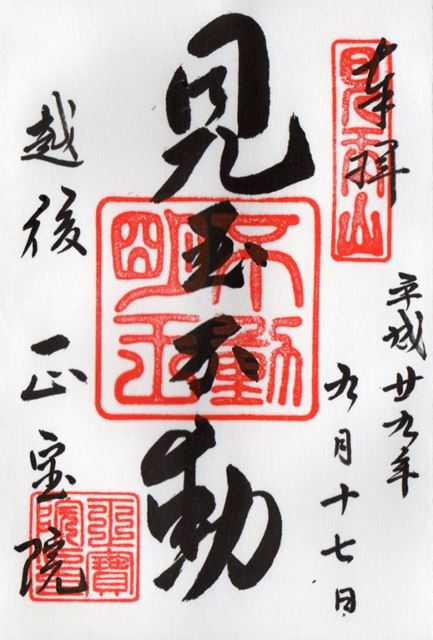 奉拝
平成廿九年
九月十七日
見玉不動
不動
明王
越後 正宝院